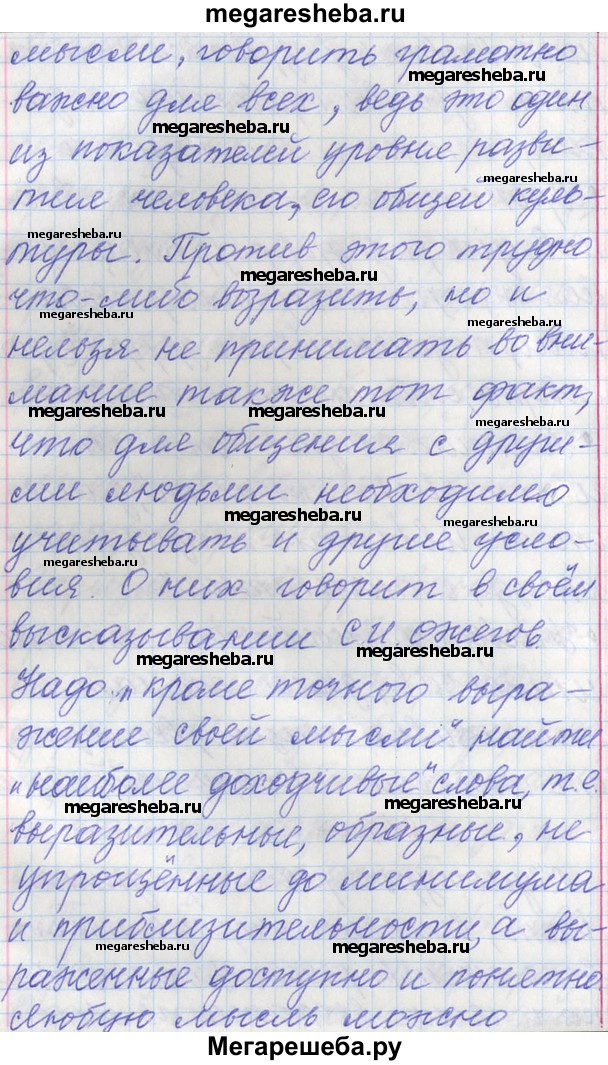 megaresheba.ru
мысли, говорить грамотно
megaresheba.ru
важно для всех, ведь это один
megaresheba.ru
из показателей уровня разви-
тия человека, его общей куль-
megaresheba.ru
megaresheba.ru
туры. Против этого трудно
megaresheba.ru
что-либо возразить, но и
megaresheba.ru
megaresheba.ru
нельзя не принимать во вни-
мание также тот факт,
megaresheba.ru
megaresheba.ru
megaresheba.ru
что для общения с други-
ми людьми необходимо
megaresheba.ru
megaresheba.ru
учитывать и другие усло-
megaresheba.ru
вия. О них говорит в своём
высказывании С.И. Ожегов.
megaresheba.ru
megaresheba.ru
Надо „кроме точного выра-
жение своей мысли“ найти
„наиболее доходчивые“ слова, т.е.
megaresheba.ru
megaresheba.ru
выразительные, образные, не
упрощённые до минимума
и приблизительности, а вы-
megaresheba.ru
megaresheba.ru
раженные доступно и понятно.
Любую мысль можно
Мегарешеба.ру